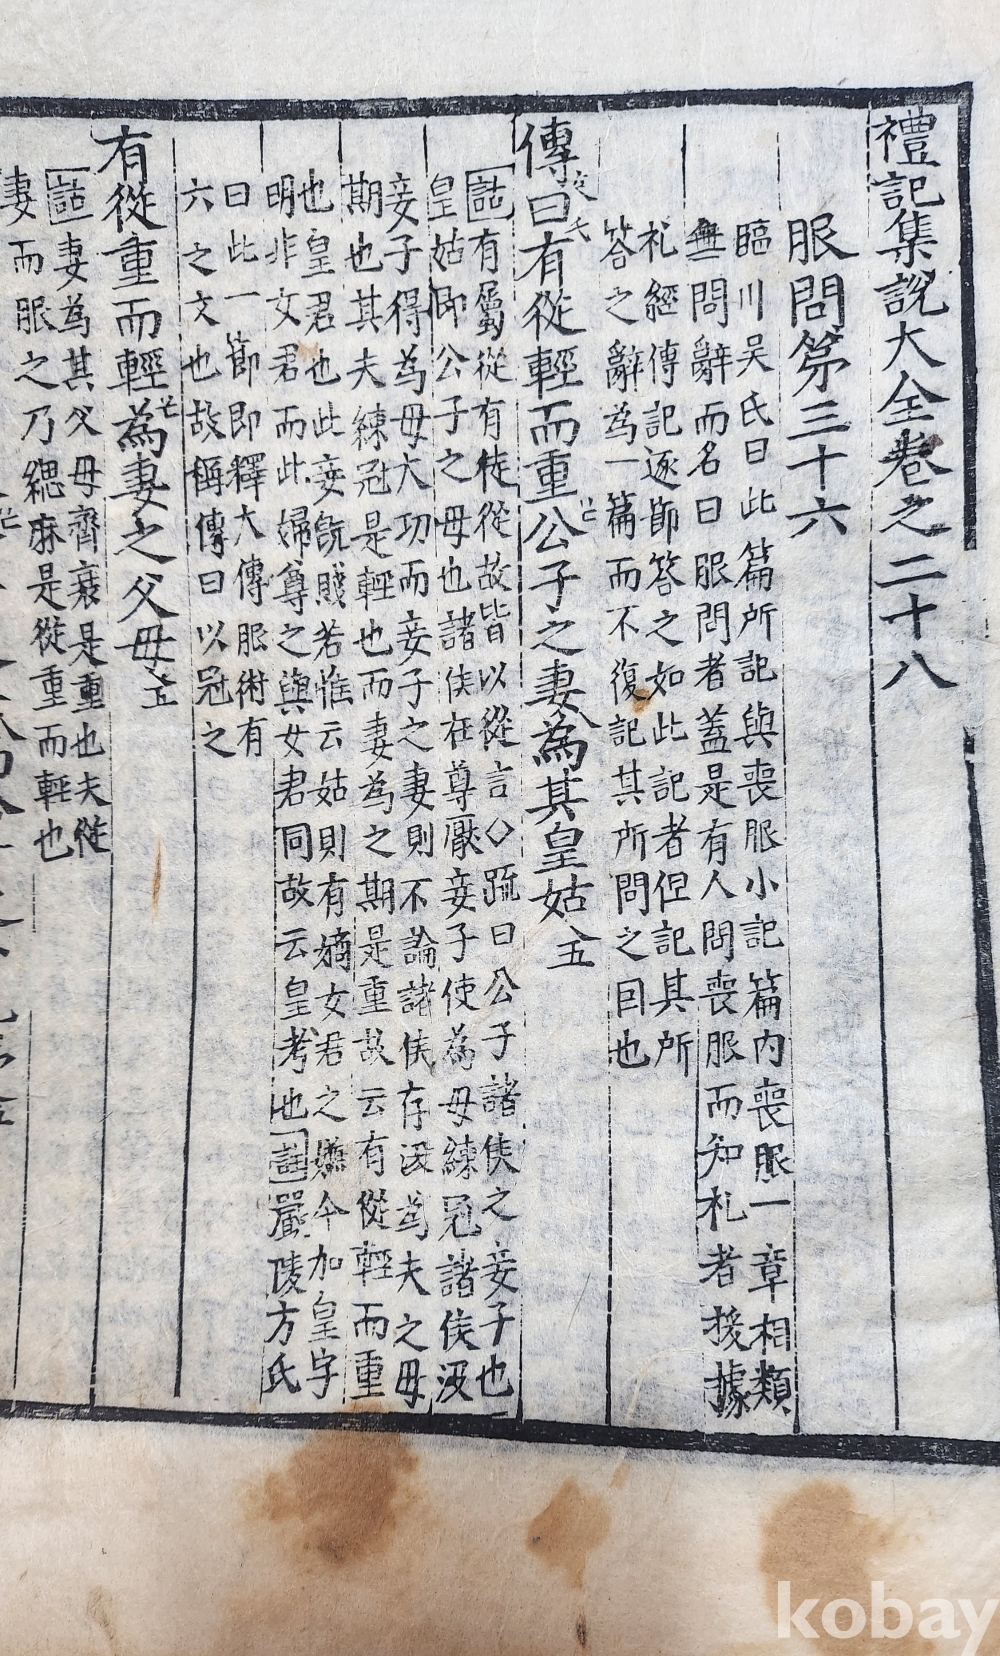 禮記集說大全卷之二十八
服問第三十六
臨川吳氏曰此篇所記與喪服小記篇內喪服一章相類
無問辭而名曰服問者盖是有人問喪服而知礼者援據
礼經傳記逐節答之如此記者但記其所
答之辭為一篇而不復記其所問之目也
傳曰有從輕而重公子之妻為其皇姑
有屬從有徒從故皆以從言○疏曰公子諸侯之妾子也
皇姑即公子之母也諸侯在尊厭妾子使為母練冠諸侯没
妾子得為母大功而妾子之妻則不論諸侯存没為夫之母
期也其夫練冠是輕也而妻為之期是重故云有從輕而重
也皇君也此妾旣賤若惟云姑則有嫡女君之嫌今加皇字
明非女君而此婦尊之與女君同故云皇考也 嚴陵方氏
曰此一節即釋大傳服術有
六之文也故稱傳曰以冠之
有從重而輕為妻之父母
妻為其父母齊衰是重也夫從
妻而服之乃緦麻是從重而輕也
kobay